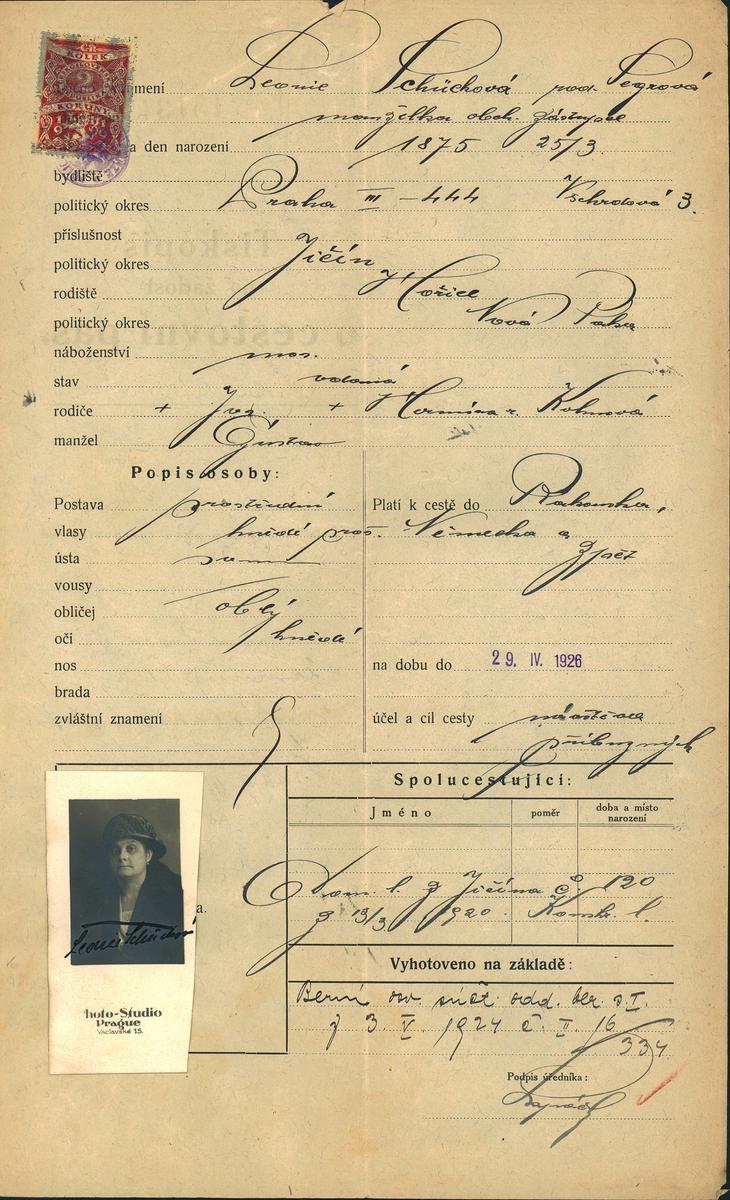 KOLEK
2
KORUNY
jmení Leonie Schücková roz. Pegrová
manželka obch. zástupce
a den narození 1875 25/3.
bydliště
politický okres Praha III - 444 Všehrdova 3.
příslušnost
politický okres Jičín
rodiště Hořice
politický okres Nová Paka
náboženství mos.
stav vdaná
rodiče + Ign. + Hermína r. Kohnová
manžel Gustav
Popis osoby:
Postava prostřední
vlasy hnědé pros.
ústa
vousy
obličej oblý
oči hnědé
nos
brada
zvláštní znamení
Platí k cestě do Rakouska,
Německa a
zpět
na dobu do 29. IV. 1926
účel a cíl cesty návštěva
příbuzných
Spolucestující:
Jméno poměr doba a místo narození
Dom. l. z Jičína č. 120
z 13/3 1920. Konskr. l.
a.
Leonie Schücková
hoto-Studio
Prague
Václavské 15.
Vyhotoveno na základě:
Berní osv súčt. odd. ber. s. I.
z 3. V. 1924 č. II. 16
334
Podpis úředníka: